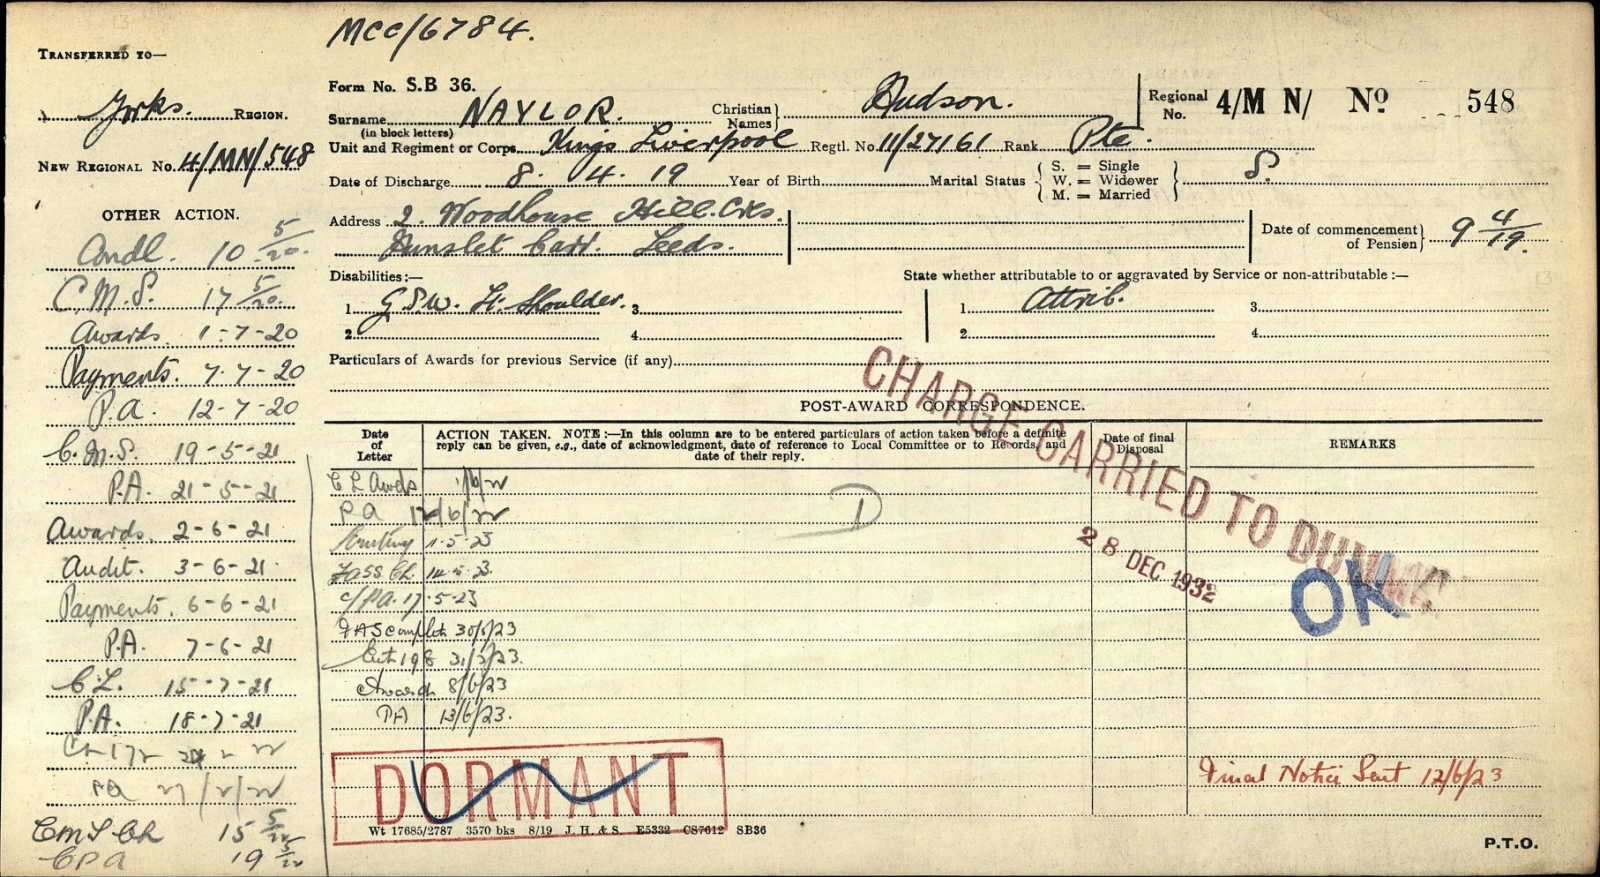 MCC/6784.
TRANSFERRED TO—
Yorks. REGION.
NEW REGIONAL No. 4/MN/548
OTHER ACTION.
Condl. 10 5/20.
C.M.S. 17 5/20.
Awards. 1-7-20
Payments. 7.7-20
P.A. 12-7-20
C.M.S. 19-5-21
P.A. 21-5-21
Awards. 2-6-21
Audit. 3-6-21.
Payments. 6-6-21
P.A. 7-6-21
C.L. 15-7-21
P.A. 18-7-21
PA
CMS Ch 15 5/22
CPA 19 5/22
Form No. S.B 36.
Surname NAYLOR. Christian Names} Hudson. Regional No. 4/M N/ No 548
(in block letters)
Unit and Regiment or Corps Kings Liverpool Regtl. No. 11/27161 Rank Pte.
Date of Discharge 8. 4. 19 Year of Birth Marital Status { S. = Single W. = Widower M. = Married } S.
Address 2. Woodhouse Hill. Cres.
Hunslet Carr. Leeds.
Date of commencement of Pension} 9 4/19.
Disabilities:— State whether attributable to or aggravated by Service or non-attributable:—
1 G.S.W. Lt. Shoulder. 3 1 Attrib. 3
2 4 2 4
Particulars of Awards for previous Service (if any)
POST-AWARD CORRESPONDENCE.
Date of Letter
ACTION TAKEN. NOTE:—In this column are to be entered particulars of action taken before a definite
reply can be given, e.g., date of acknowledgment, date of reference to Local Committee or to Records, and
date of their reply.
Date of final Disposal
REMARKS
C L Awds 1/6/22
PA 12/6/22
1-5-23
14-5-23.
C/PA. 17-5-23
FAS Complete 30/5/23
198 31/5/23.
Awards 8/6/23
PA 13/6/23.
D
CHARGE CARRIED TO
28 DEC 1932
OK
Final Notice Sent 12/6/23
DORMANT
Wt 17685/2787 3570 bks 8/19 J. H. & S. E5332 CS7612 SB36
P.T.O.